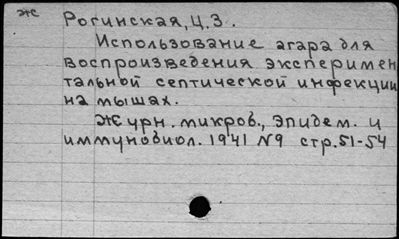 ж
Рогинская, Ц.З.
Использование агара для
воспроизведения эксперимен
тальной септической инфекции
на мышах.
Журн. микров., эпидем. и
иммунобиол. 1941 №9 стр. 51-54